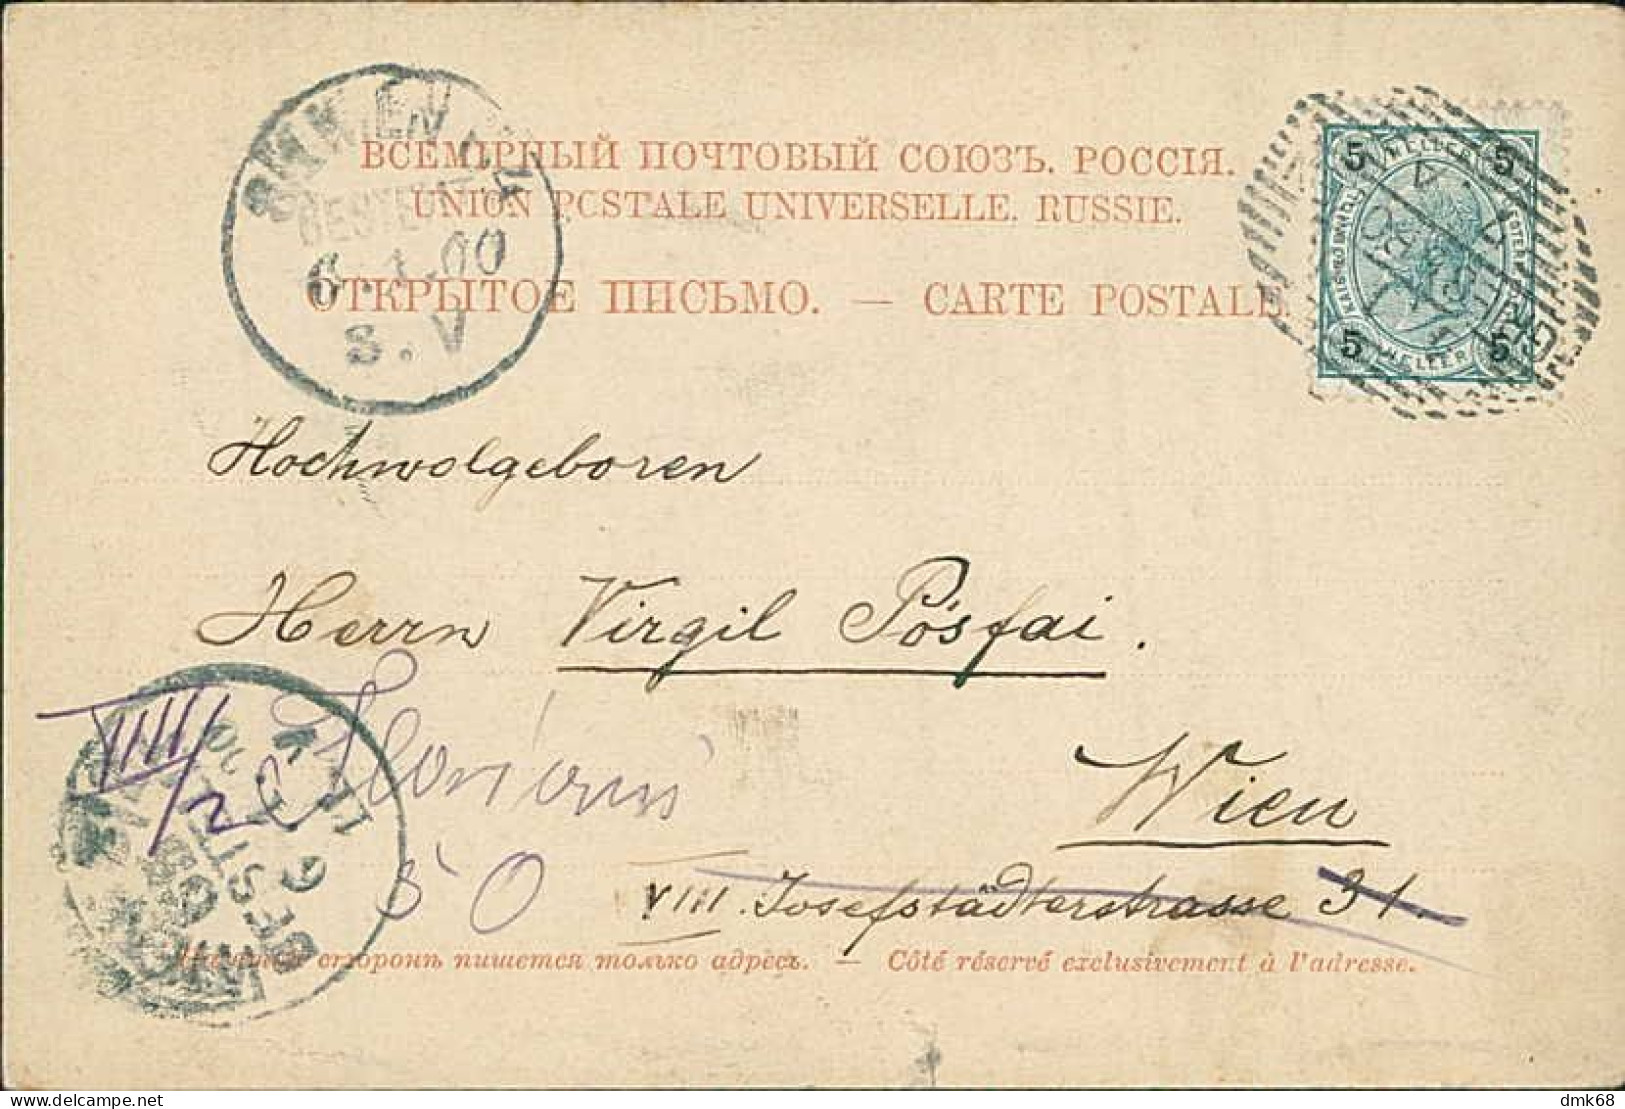 8/1 WIEN
BESTELLT
6.1.00
8.V
ВСЕМІРНЫЙ ПОЧТОВЫЙ СОЮЗЪ. РОССІЯ.
UNION POSTALE UNIVERSELLE. RUSSIE.
ОТКРЫТОЕ ПИСЬМО. — CARTE POSTALE.
5 5
5 HELLER 5
Hochwolgeboren
Herrn Virgil Pósfai.
VIII/2
Florianis
50
Wien
VIII. Josefstädterstrasse 31.
BESTELLT
На этой сторонѣ пишется только адресъ. — Côté réservé exclusivement à l'adresse.
dmk68